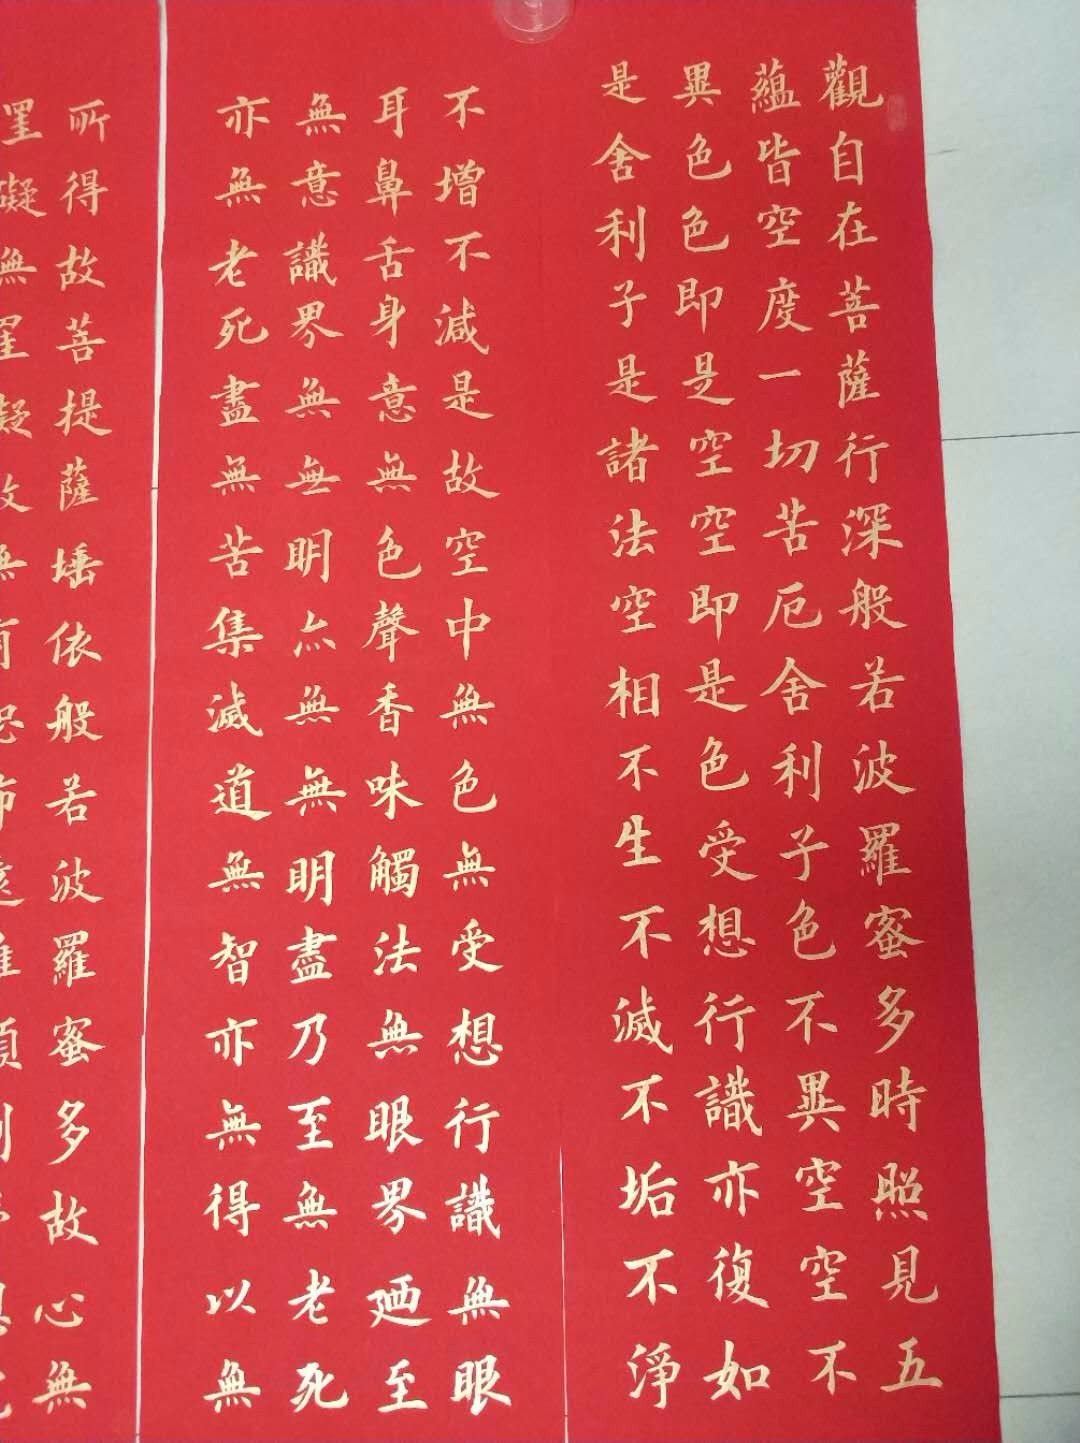 觀自在菩薩行深般若波羅蜜多時照見五
蘊皆空度一切苦厄舍利子色不異空空不
異色色即是空空即是色受想行識亦復如
是舍利子是諸法空相不生不滅不垢不淨
不增不減是故空中無色無受想行識無眼
耳鼻舌身意無色聲香味觸法無眼界廼至
無意識界無無明亦無無明盡乃至無老死
亦無老死盡無苦集滅道無智亦無得以無
所得故菩提薩埵依般若波羅蜜多故心無
罣礙無罣礙